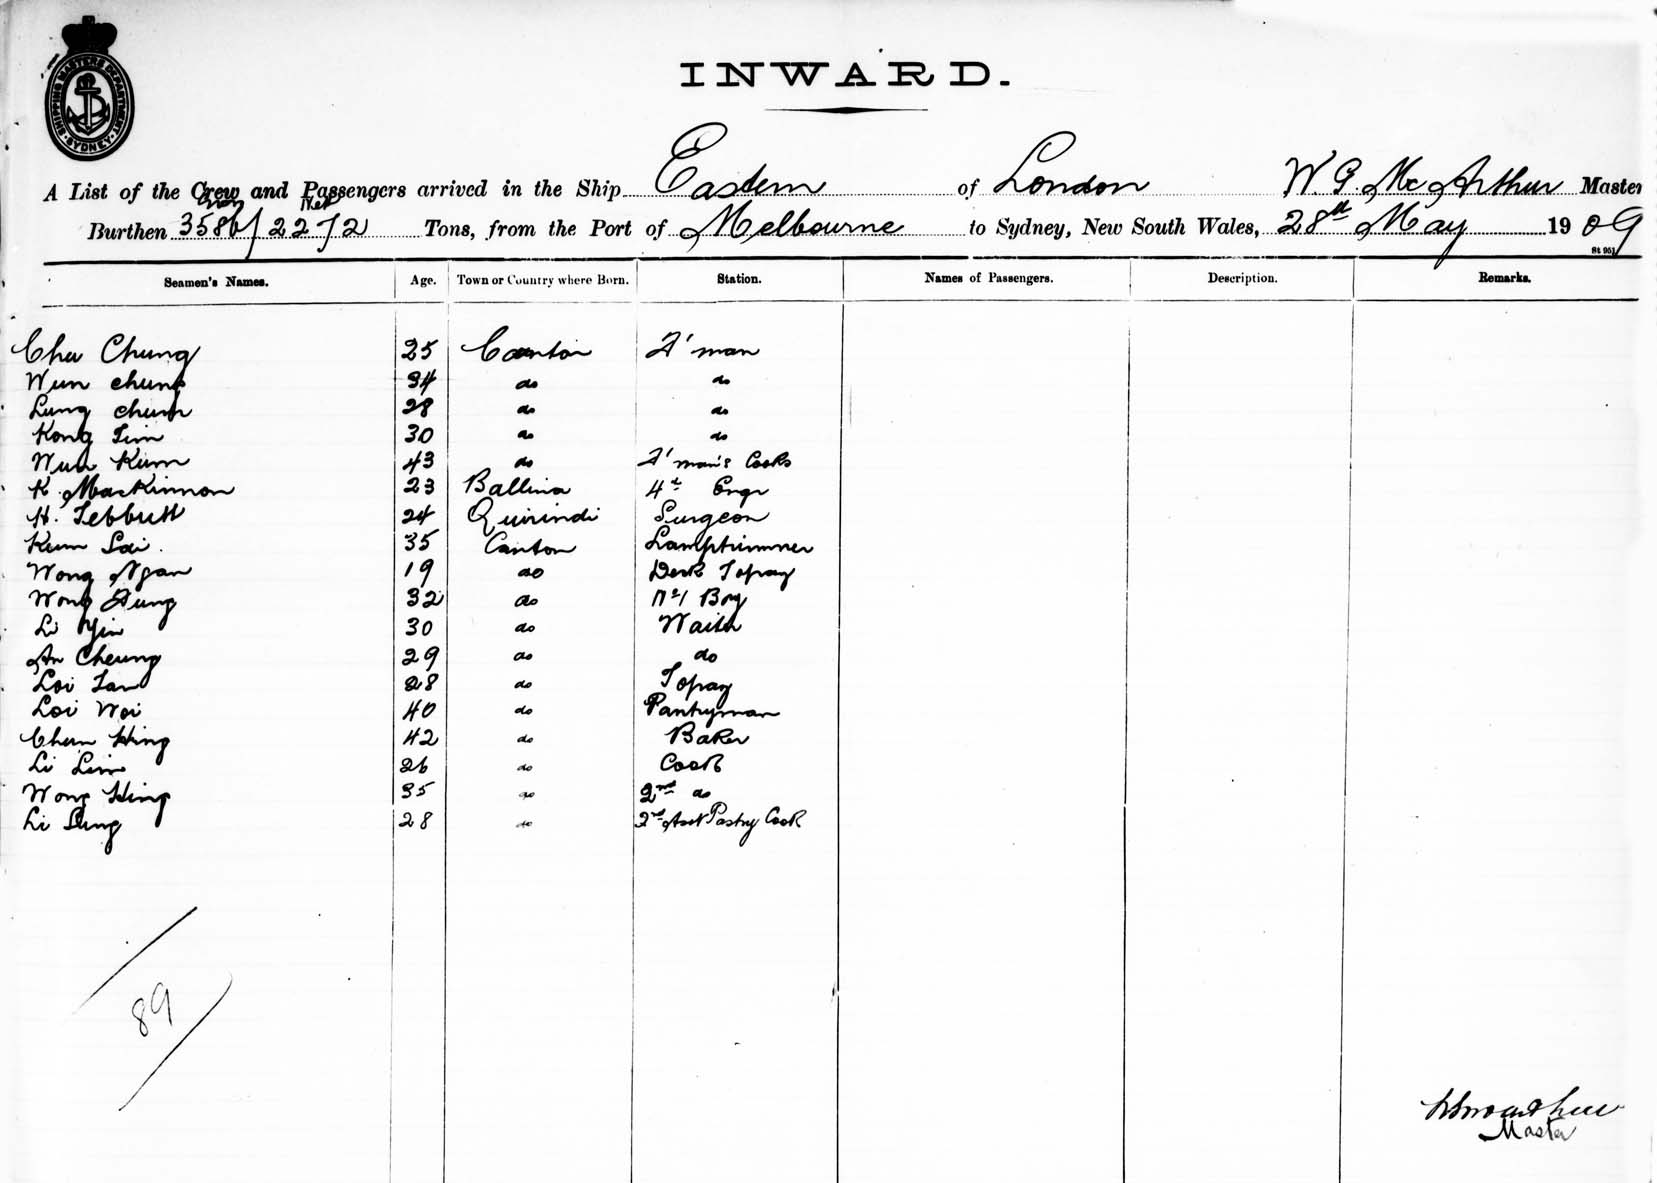 SHIPPING MASTERS DEPARTMENT
SYDNEY
INWARD.
A List of the Crew and Passengers arrived in the Ship Eastern of London W. G. McArthur Master
Gross Net
Burthen 3586/2272 Tons, from the Port of Melbourne to Sydney, New South Wales, 28th May 1909
St 951
Seamen's Names. Age. Town or Country where Born. Station. Names of Passengers. Description. Remarks.
Cha Chung 25 Canton F'man
Wun Chung 34 do do
Lung Chun 28 do do
Kong Tim 30 do do
Wun Kum 43 do F'man's Cook
K. MacKinnon 23 Ballina 4th Engr
H. Tebbutt 24 Quirindi Surgeon
Kum Soi 35 Canton Lamptrimmer
Wong Ngan 19 do Deck Topay
Wong Fung 32 do No 1 Boy
Li Yin 30 do Waiter
An Cheung 29 do do
Loi Tan 28 do Topay
Loi Woi 40 do Pantryman
Chun Hing 42 do Baker
Li Lim 26 do Cook
Wong Hing 35 do 2nd do
Li Sung 28 do 2nd Asst Pastry Cook
89
Master